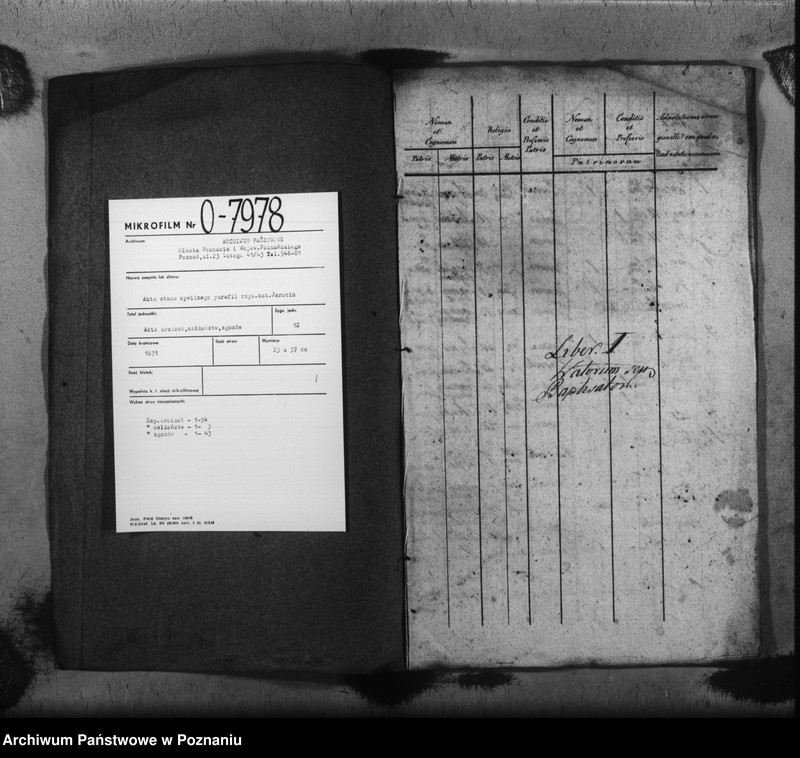 MIKROFILM Nr O-7978
Archiwum: ARCHIWUM PAŃSTWOWE
Miasta Poznania i Wojew. Poznańskiego
Poznań, ul. 23 Lutego 41/43 Tel. 546-01
Nazwa zespołu lub zbioru:
Akta stanu cywilnego parafii rzym.kat. Jarocin
Tytuł jednostki: Sygn. jedn.
Akta urodzeń, małżeństw, zgonów 12
Daty krańcowe: Ilość stron: Wymiary:
1831 23 x 37 cm
Ilość klatek:
Wypełnia k. t. stacji mikrofilmowej
Wykaz stron niezapisanych:
Zap. urodzeń - 1-54
" małżeństw - 1- 3
" zgonów - 1- 43
Nomen et Cognomen
Religio
Conditio et Professio Patris
Nomen et Cognomen
Conditio et Professio
Patris Matris Patris Matris Patrinorum
Liber. I
Natorum seu
Baptisatorum
Archiwum Państwowe w Poznaniu